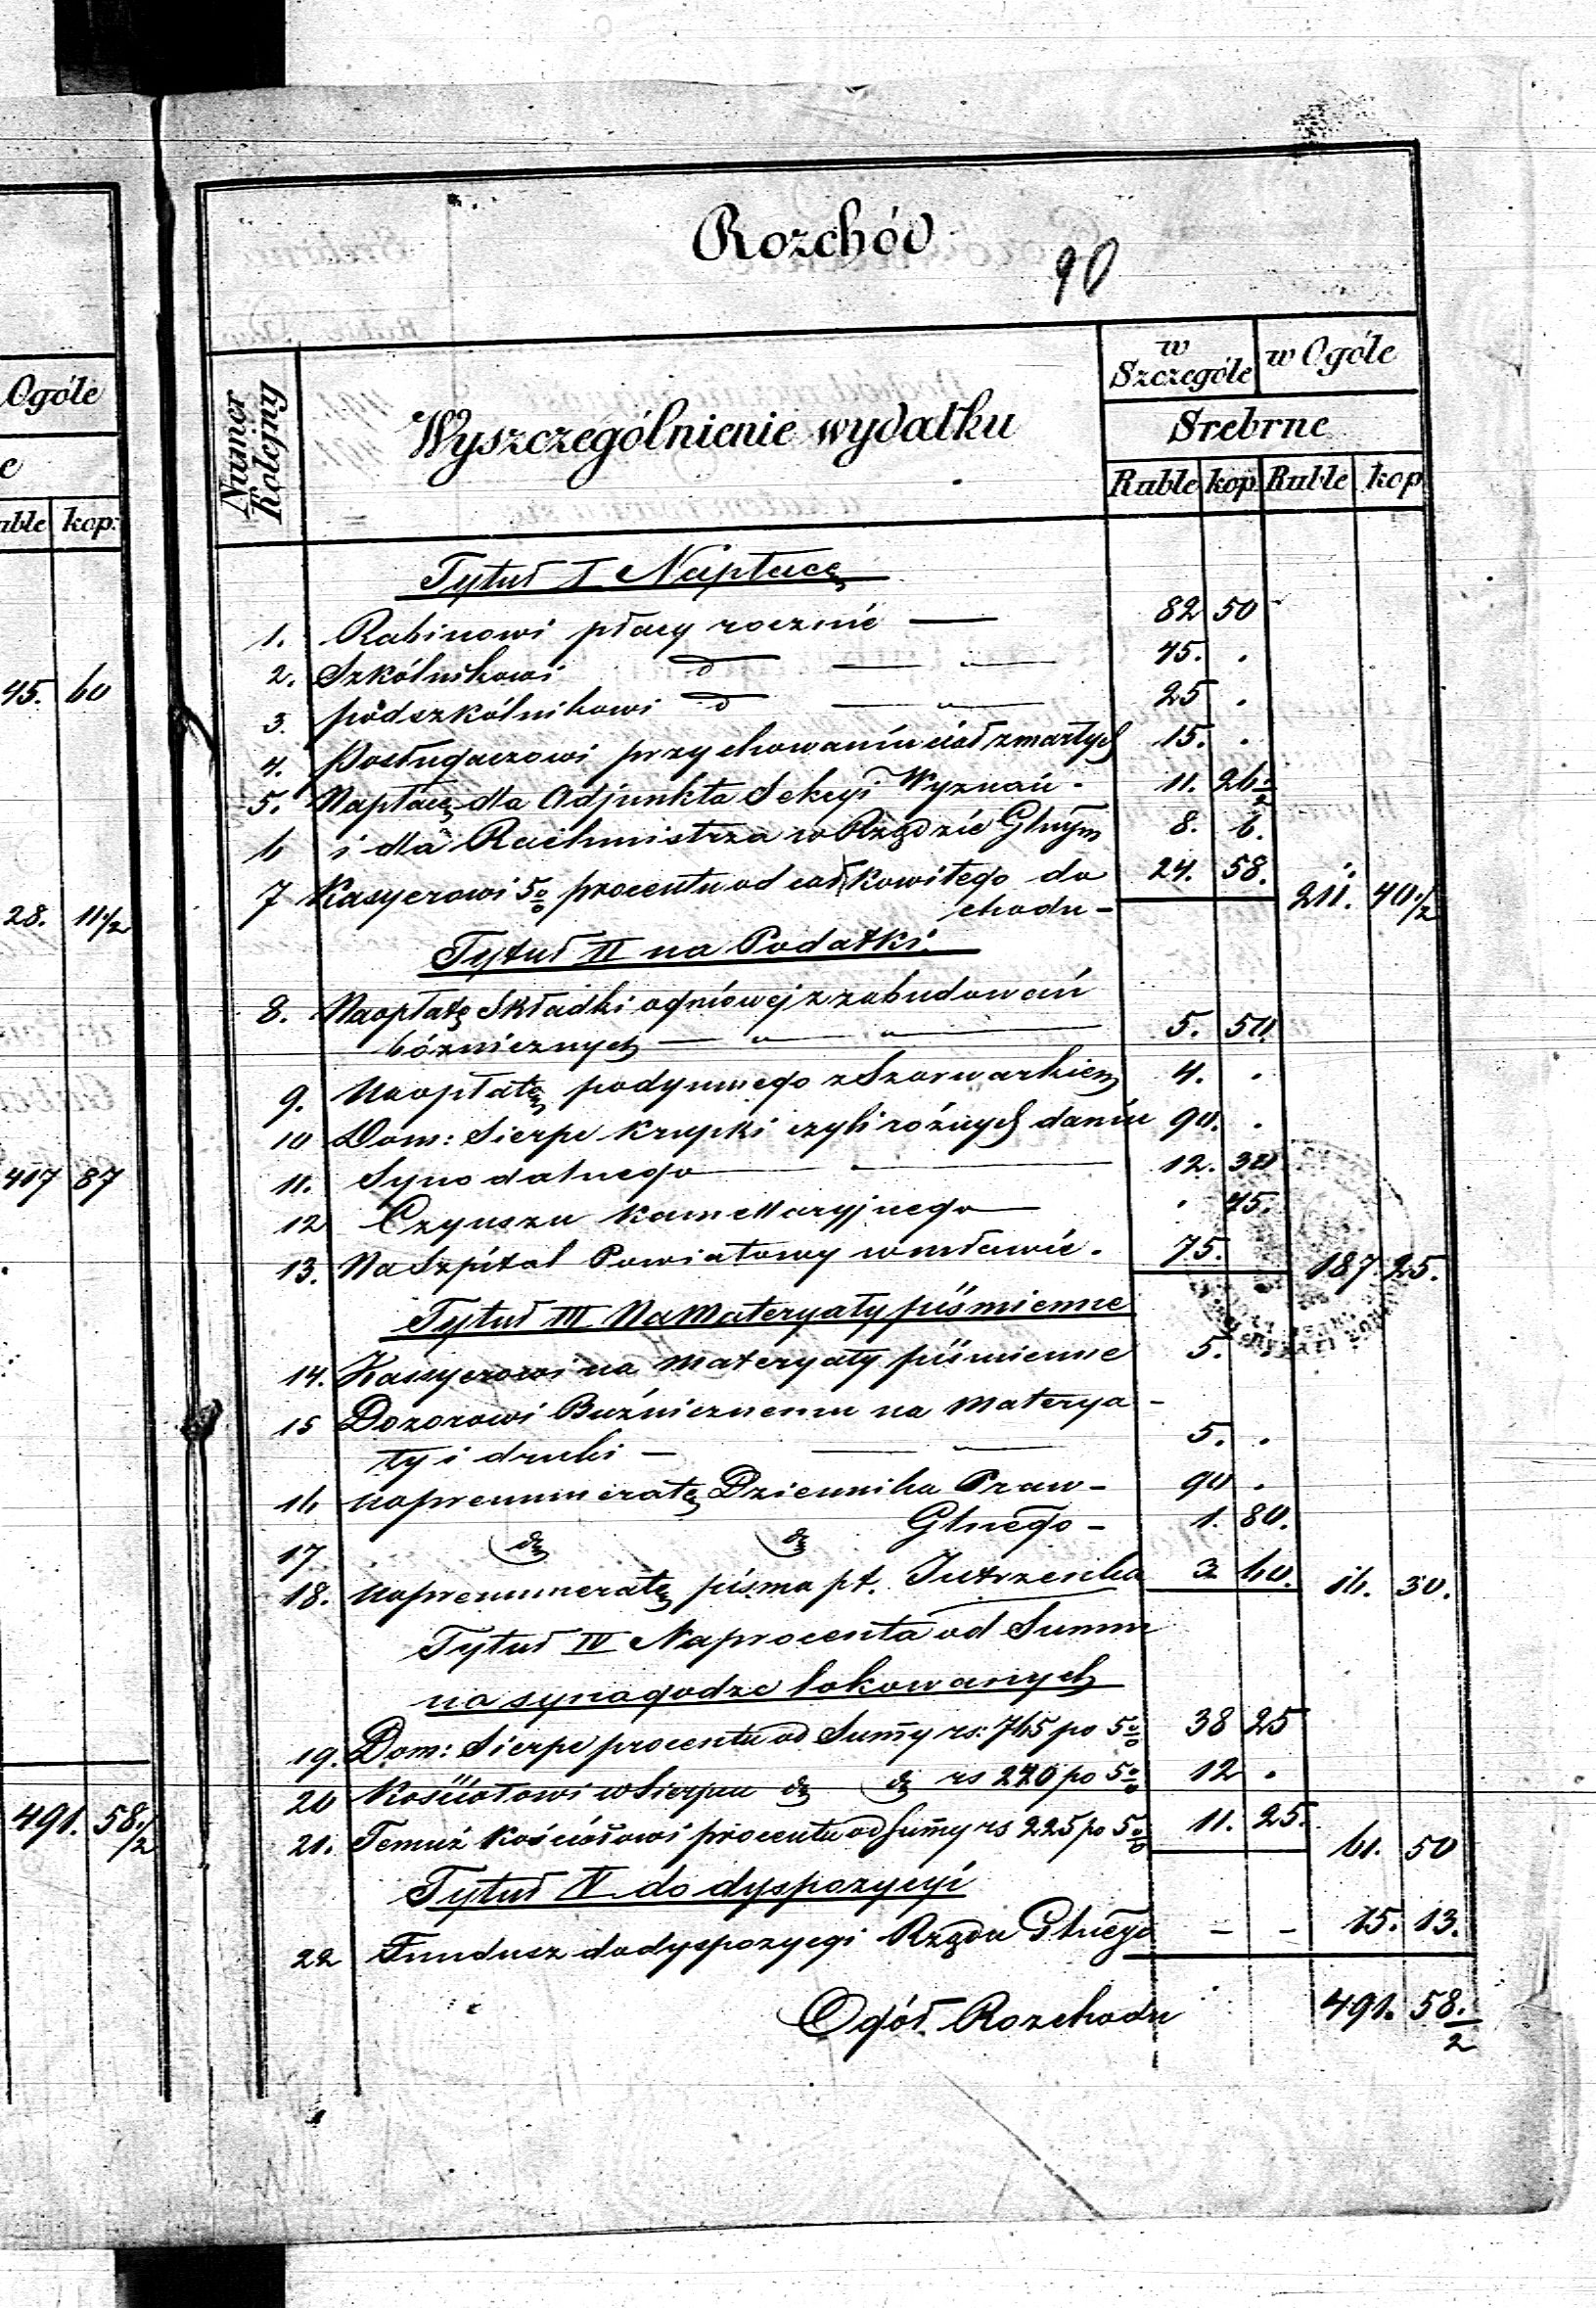 Ogóle
e
uble kop:
45. 60
28. 11½
417 87
491. 58½
Rozchód
90
Numer Kolejny
Wyszczególnienie wydatku
w Szczególe
w Ogóle
Srebrne
Ruble kop Ruble kop
Tytuł I Na płacę
1. Rabinowi płacy rocznie — 82 50
2. Szkólnikowi d — „ — 45. .
3. podszkólnikowi d — „ — 25 .
4. Posługaczowi przy chowaniu ciał zmarłych 15. .
5. Na płacę dla Adjunkta Sekcyi Wyznań - 11. 26½
6 i dla Rachmistrza w Rządzie Glnym 8. 6.
7 Kasyerowi 5% procentu od całkowitego do 24. 58.
chodu - 211. 40½
Tytuł II na Podatki.
8. Na opłatę Składki ogniowej z zabudowań
bóżnicznych — „ — „ — 5. 50.
9. Na opłatę podymnego z Szarwarkiem 4. .
10 Dom: Sierpc krupki czyli różnych danin 90. .
11. Synodalnego — — 12. 30
12 Czynszu kamellaryjnego — . 45.
13. Na Szpital Powiatowy w Mławie. 75.
187. 25.
Tytuł III Na Materyały piśmienne
14. Kassyerowi na materyały piśmienne 5. .
15 Dozorowi Buźnicznemu na materya-
ły i druki — — „ — 5. .
16 na prenumeratę Dziennika Praw - 90 .
17 d d Glnego - 1. 80.
18. na prenumeratę pisma pt. Jutrzenka 3 60. 16. 30.
Tytuł IV Na procenta od Summ
na synagodze lokowanych
19. Dom: Sierpc procentu od Sumy rs: 765 po 5% 38 25
20 Kościołowi w Sierpcu d d rs 240 po 5% 12 .
21. Temuż Kościołowi procentu od Sumy rs 225 po 5% 11. 25.
61. 50
Tytuł V do dyspozycyi
22 Fundusz do dyspozycyi Rządu Glnego - - 15. 13.
Ogół Rozchodu 491. 58½